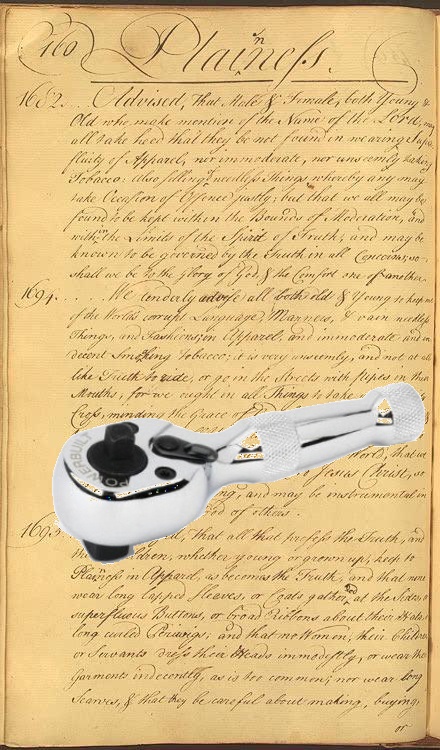 160
Plainness.
1682... Advised, That Male & Female, both Young &
Old who make mention of the Name of the Lord, may
all take heed that they be not found in wearing Supe
fluity of Apparel, nor immoderate, nor unseemly taking
Tobacco: also selling needless Things whereby any may
take Occasion of Offence justly; but that we all may be
found to be kept within the Bounds of Moderation, and
within the Limits of the Spirit of Truth; and may be
known to be governed by the Truth in all Concerns, so
shall we be to the Glory of God, & the Comfort one of another.
1694..... We tenderly advise all both old & Young to keep out
of the World's corrupt Language, Manners, & vain needless
Things, and Fashions, in Apparel, and immoderate and in
decent Smoking Tobacco; it is very unseemly, and not at all
like Truth to ride, or go in the Streets with pipes in their
Mouths, for we ought in all Things to take
Cross, minding the Grace of
World, that
of Jesus Christ, so
and may be instrumental in
of others.
POWERBUILT
POWER
that all that profess the Truth, and
Children, whether young or grown up, keep to
Plainness in Apparel, as becomes the Truth, and that none
wear long lapped Sleeves, or Coats gathered at the Sides, or
superfluous Buttons, or broad Ribbons about their Hats, or
long curled Periwigs; and that no Women, their Children
or Servants dress their Heads immodestly, or wear their
Garments indecently, as is too common; nor wear long
Scarves, & that they be careful about making, buying,
or